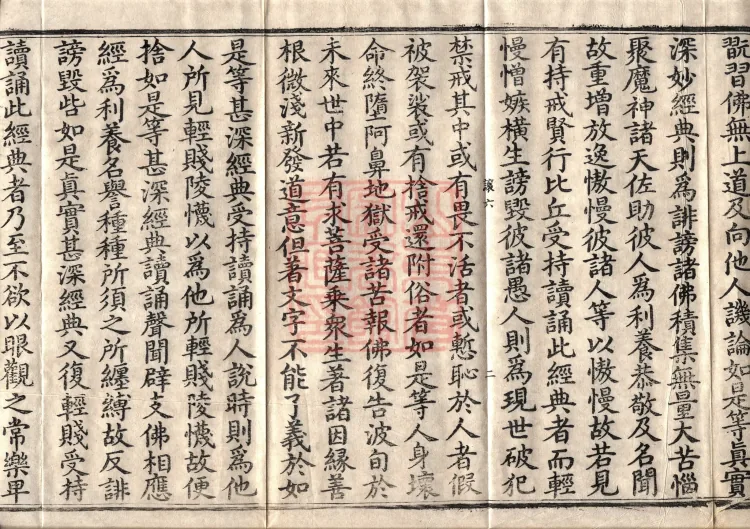 翫習佛無上道及向他人譏論如是等真實
深妙經典則爲誹謗諸佛積集無量大苦惱
聚魔神諸天佐助彼人爲利養恭敬及名聞
故重增放逸慠慢彼諸人等以慠慢故若見
有持戒賢行比丘受持讀誦此經典者而輕
慢憎嫉橫生謗毀彼諸愚人則爲現世破犯
讓六
二
禁戒其中或有畏不活者或慙恥於人者假
被袈裟或有捨戒還附俗者如是等人身壞
命終墮阿鼻地獄受諸苦報佛復告波旬於
未來世中若有求菩薩乘衆生著諸因緣善
根微淺新發道意但著文字不能了義於如
是等甚深經典受持讀誦爲人說時則爲他
人所見輕賤陵懱以爲他所輕賤陵懱故便
捨如是等甚深經典讀誦聲聞辟支佛相應
經爲利養名譽種種所須之所纏縛故反誹
謗毀呰如是真實甚深經典又復輕賤受持
讀誦此經典者乃至不欲以眼觀之常樂卑